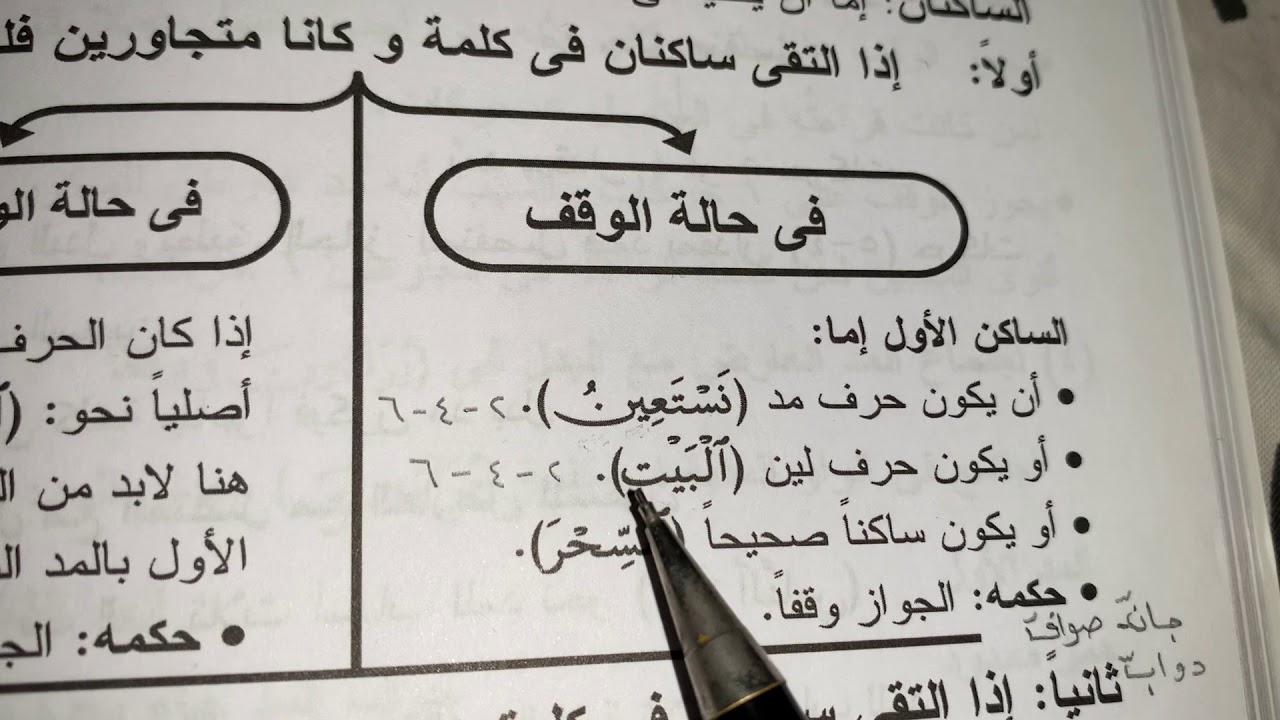 الساكنان: إما أن
أولاً: إذا التقى ساكنان فى كلمة و كانا متجاورين
فى حالة الوقف
الساكن الأول إما:
• أن يكون حرف مد (نَسْتَعِينُ). ٢-٤-٦
• أو يكون حرف لين (ٱلْبَيْتِ). ٢-٤-٦
• أو يكون ساكناً صحيحاً (ٱلسِّحْرَ).
• حكمه: الجواز وقفاً.
فى حالة
إذا كان الحرف
أصلياً نحو:
هنا لابد من
الأول بالمد
• حكمه:
صوافّ
دوابّ
ثانياً: إذا التقى